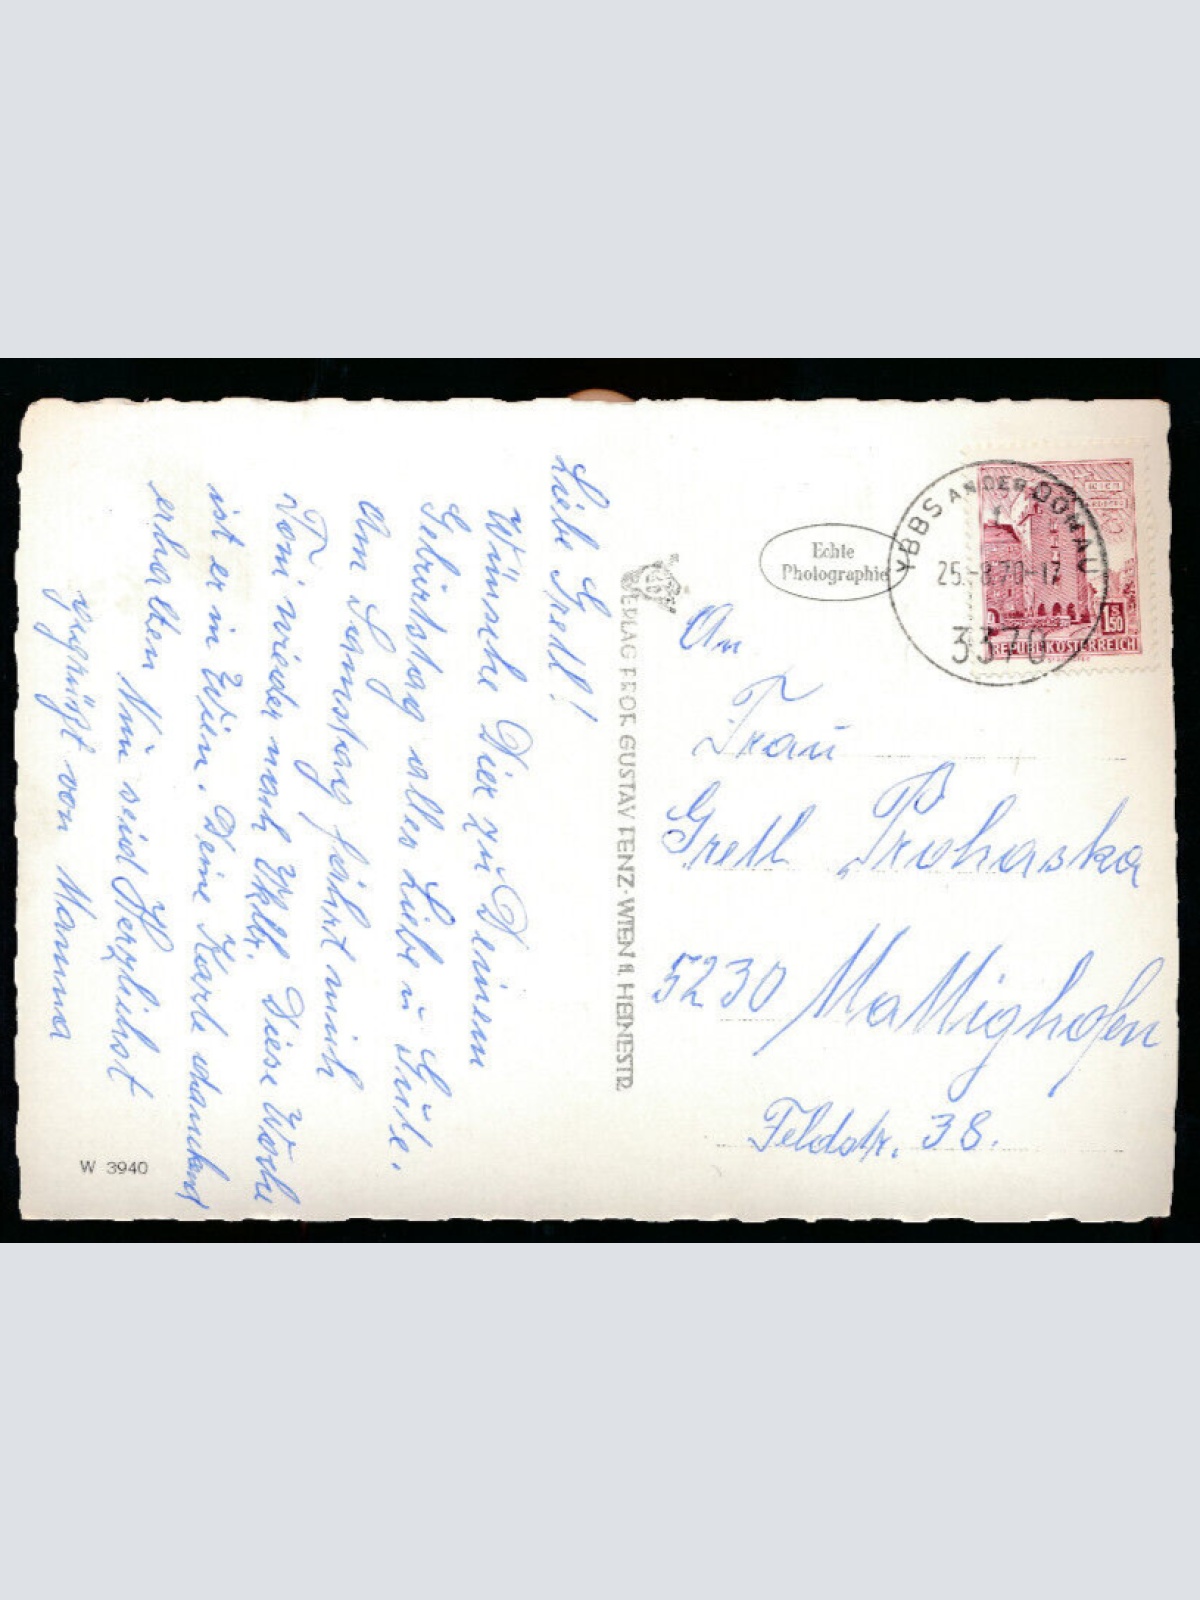 Liebe Gretl!
Wünsche Dier zu Deinem
Gebirtstag alles Liebe u Gute.
Am Samstag fährt mich
Toni wieder nach Diese Woche
ist er in Wien. Deine Karte dankend
erhalten Nun seid Herzlichst
gegrüßt von Mamma
W 3940
VERLAG FROR GUSTAV TENZ·WIEN II. HEINESTR
Echte
Photographie
YBBS AN DER DONAU
25.-8.70-17
3370
WIEN
1.50
S
REPUBLIK ÖSTERREICH
An
Frau
Gretl Prohaska
5230 Mattighofen
Feldstr. 38.